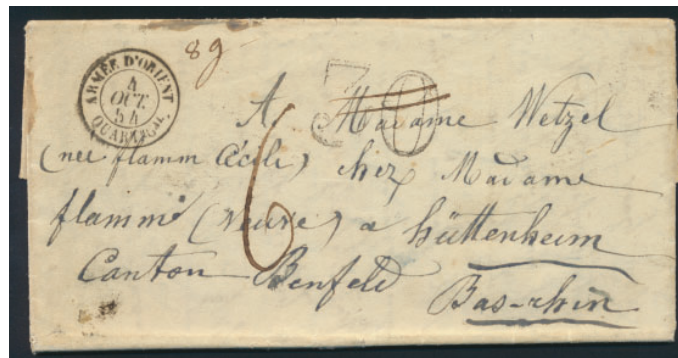 ARMÉE D'ORIENT
4
OCT.
54
QUART. GAL.
89
30
6
A Madame Wetzel
(née flamm Cécile) chez Madame
flamm (veuve) a hüttenheim
Canton Benfeld
Bas-rhin